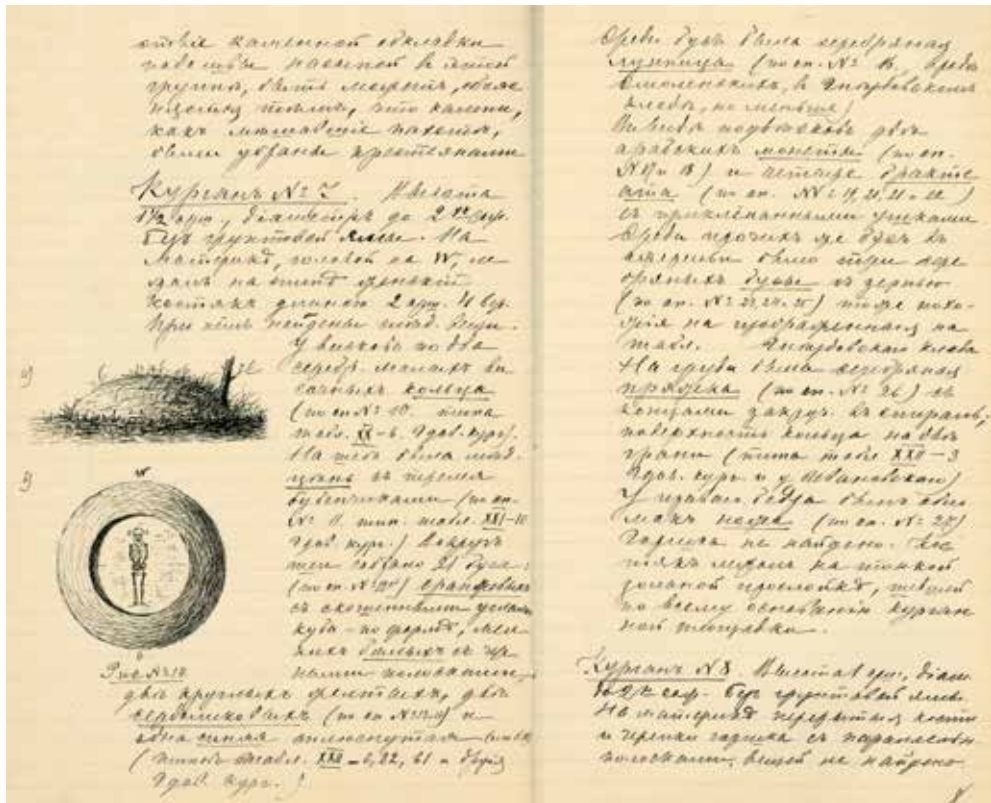 ствіе каменной обкладки
насыпей въ этой
группѣ, быть можетъ, объяс
тѣмъ, что камни,
какъ мѣшавшіе пахотѣ,
были убраны крестьянами
Курганъ № 7. Высота
1½ арш., діаметръ до 2 саж.
Безъ грунтовой ямы. На
материкѣ, головой на W, ле
жалъ на спинѣ женскій
костякъ длиною 2 арш. 4 вер.
При немъ найдены слѣд. вещи.
У висковъ по два
серебр. малыхъ ви
сочныхъ кольца
(по оп. № 10. типа
табл. XX–6. Гдов. кург.).
На шеѣ была мѣд.
цѣпь съ тремя
бубенчиками (по оп.
№ 11. тип. табл. XXI–10
Гдов. кург.) Вокругъ
шеи собрано 21 буса:
(по оп. №) оранжевыхъ
съ скошенными углами
куба – по формѣ, мел
кихъ бѣлыхъ съ чер
ными полосками,
Рис. №
двѣ круглыхъ желтыхъ, двѣ
сердоликовыхъ (по оп. №) и
одна синяя сплюснутая
(типа табл. XXII – 6, 22, 61 и другія
Гдов. кург.)
Среди бусъ была серебряная
лунница (по оп. № 13, вродѣ
Смоленскихъ, въ Гнѣздовскомъ
кладѣ, но меньше)
Въ видѣ подвѣсковъ двѣ
арабскихъ монеты (по оп.
№ 17 и 18) и четыре бракте
ата (по оп. №№ 19, 20, 21 и 22)
съ приклёпанными ушками
Среди прочихъ же бусъ въ
ожерельи было три сере
бряныхъ бусы съ зернью
(по оп. № 23, 24, 25) тоже похо
жія на изображенныя на
табл. Гнѣздовскаго клада
На груди была серебряная
пряжка (по оп. № 26) съ
концами закруч. въ спираль;
поверхность кольца на двѣ
грани (типа табл. XXII – 3
Гдов. кург. и у Ивановскаго)
У праваго бедра былъ обло
мокъ ножа (по оп. № 27)
Горшка не найдено. Кос
тякъ лежалъ на тонкой
зольной прослойкѣ, шедшей
по всему основанію курган
ной площадки.
Курганъ № 8 Высота 1 арш., діам.
до 2 саж. Безъ грунтовой ямы.
На материкѣ перерытыя кости
и черепки горшка съ параллельн
полосками, вещей не найдено